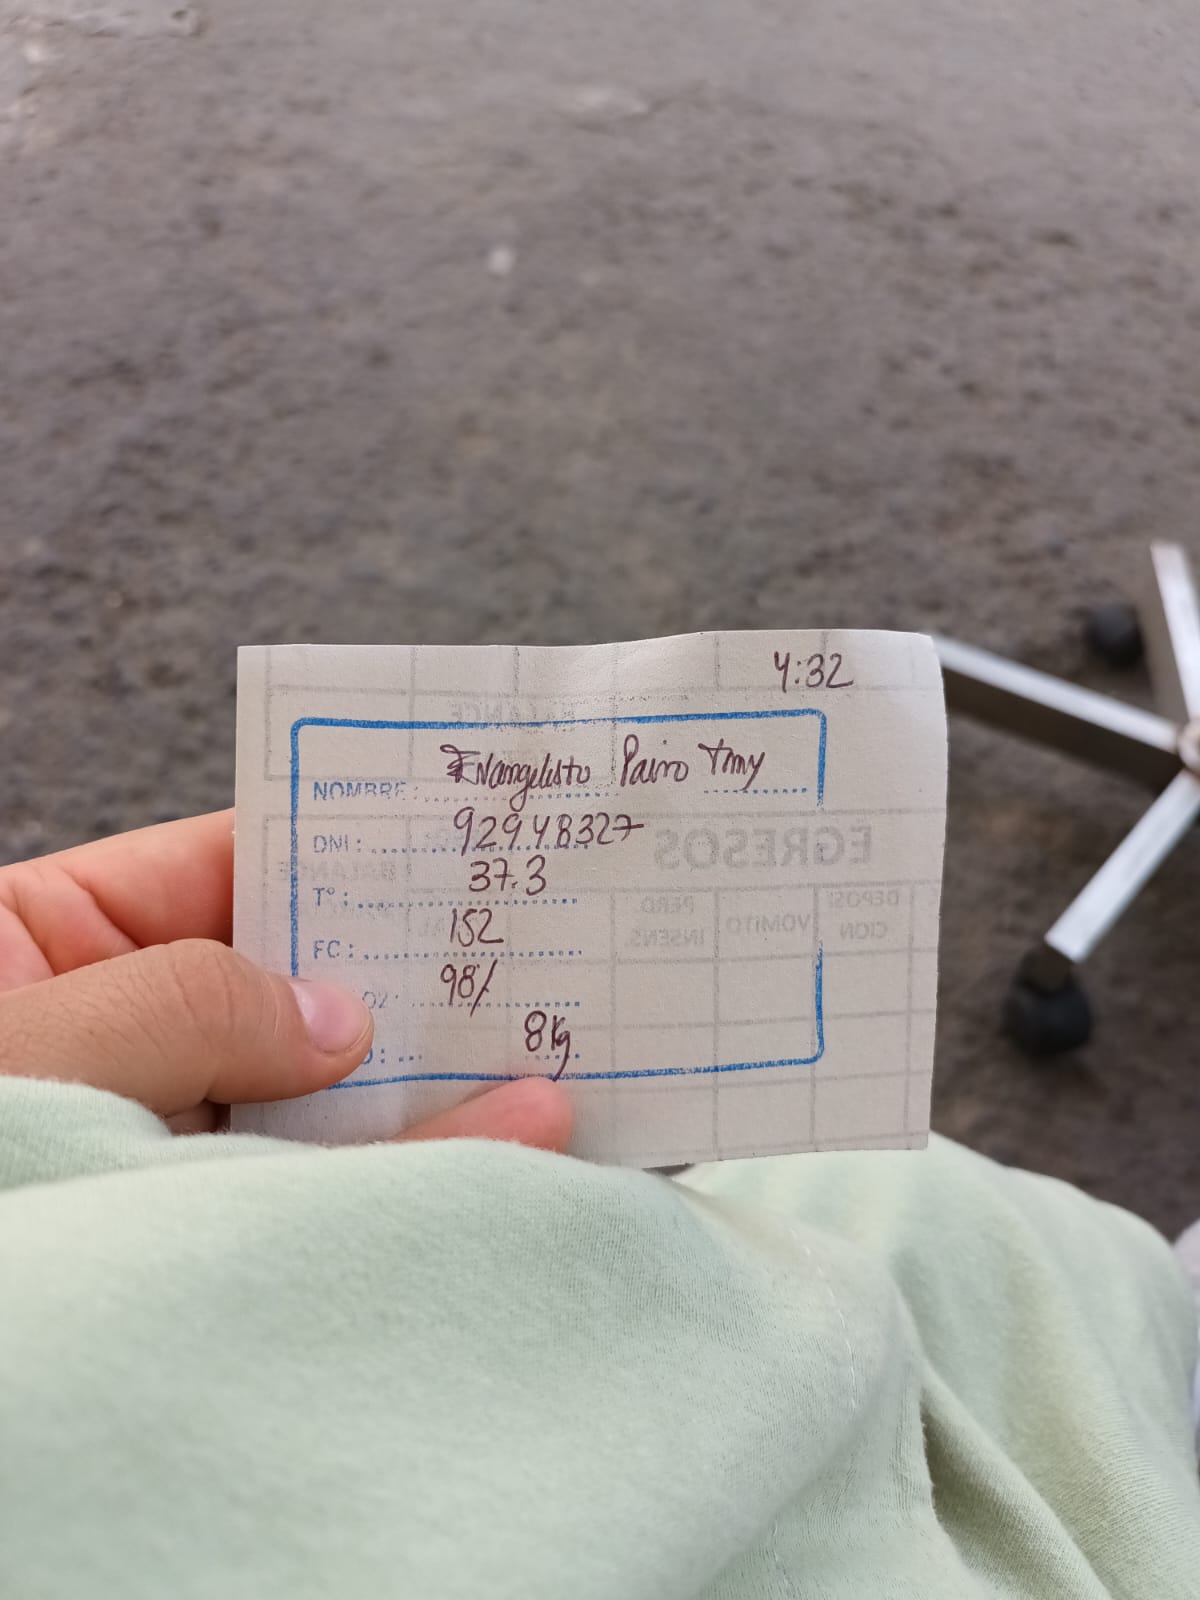 4:32
NOMBRE: Evangelisto Pairo Tmy
DNI: 92948327
T°: 37.3
FC: 152
O2: 98%
O: 8kg
BALANCE
EGRESOS
BALANCE
PERD. INSENS.
VOMITO
DEPOSICION